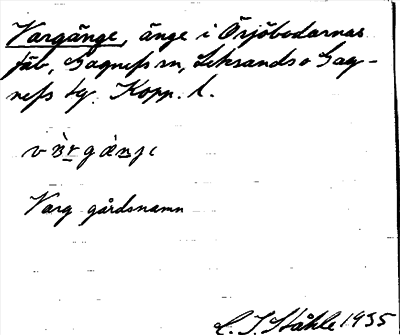 Vargänge, änge i Örsjöbodarnas
fäb, Gagnefs sn, Leksands o Gag-
nefs tg. Kopp. l.
Varg gårdsnamn
C. I. Ståhle 1935